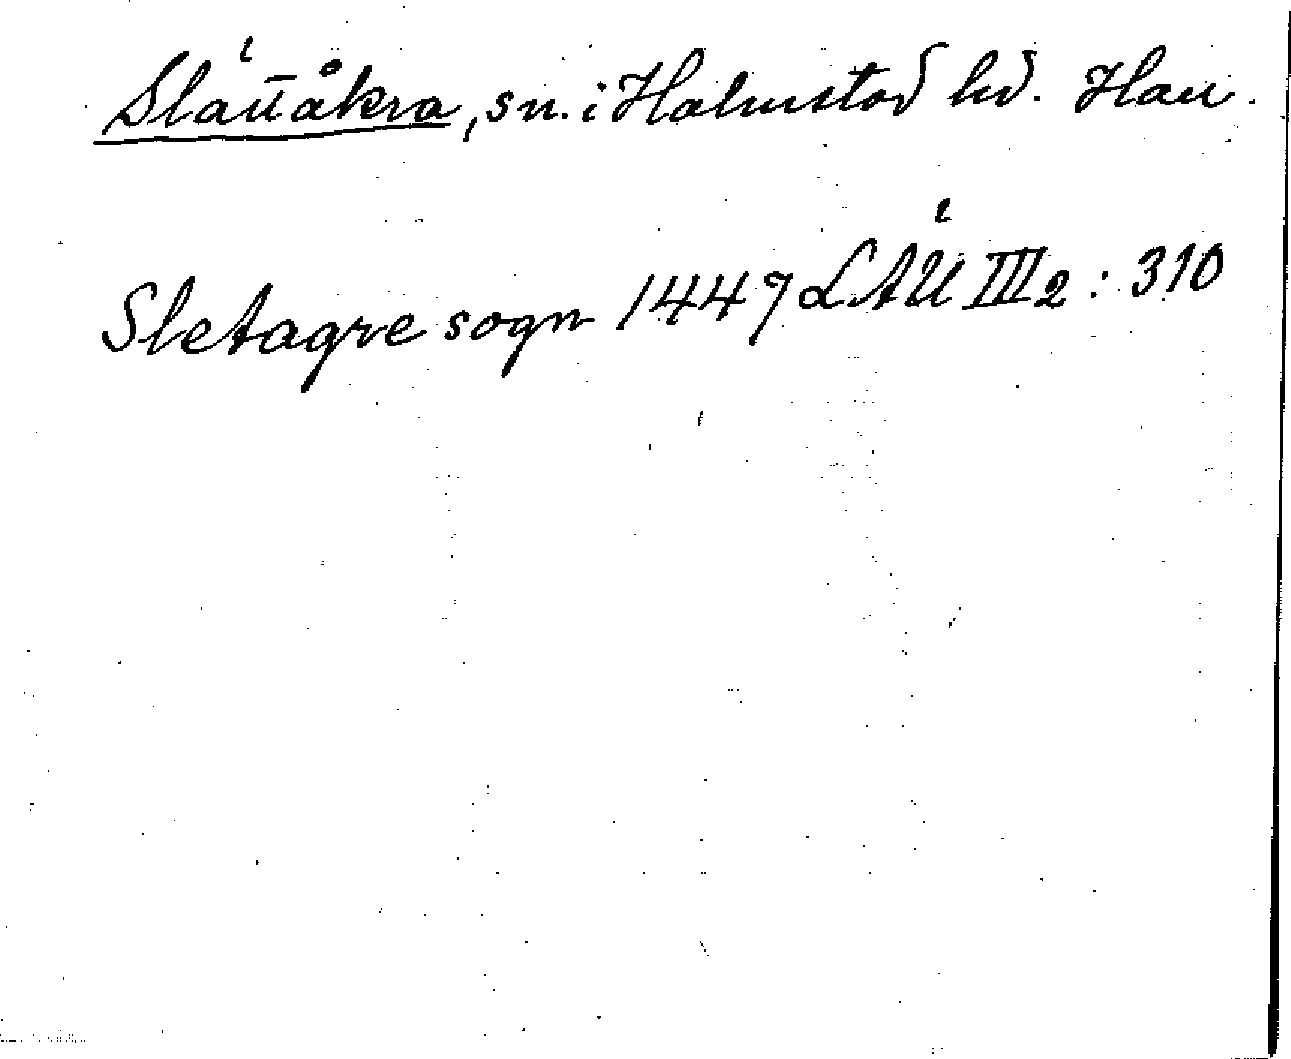 Slättåkra, sn. i Halmstad hd. Hall.
Sletagre sogn 1447 LÄU III2: 310